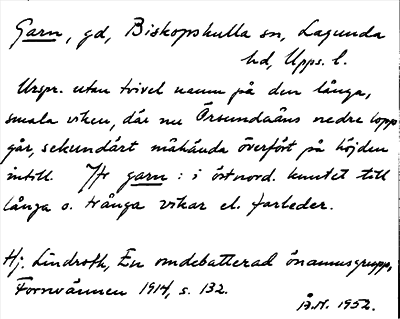 Garn, gd, Biskopskulla sn, Lagunda
hd, Upps. l.
Urspr. utan tvivel namn på den långa,
smala viken, där nu Örsundaåns nedre lopp
går, sekundärt måhända överfört på höjden
intill. Jfr garn : i östnord. knutet till
långa o. trånga vikar el. farleder.
Hj. Lindroth, En omdebatterad önamnsgrupp,
Fornvännen 1914, s. 132.
Å.N. 1952.